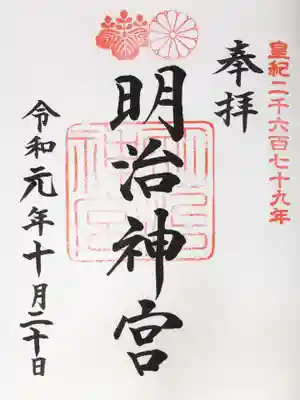 皇紀二千六百七十九年
奉拝
明治神宮
令和元年十月二十日